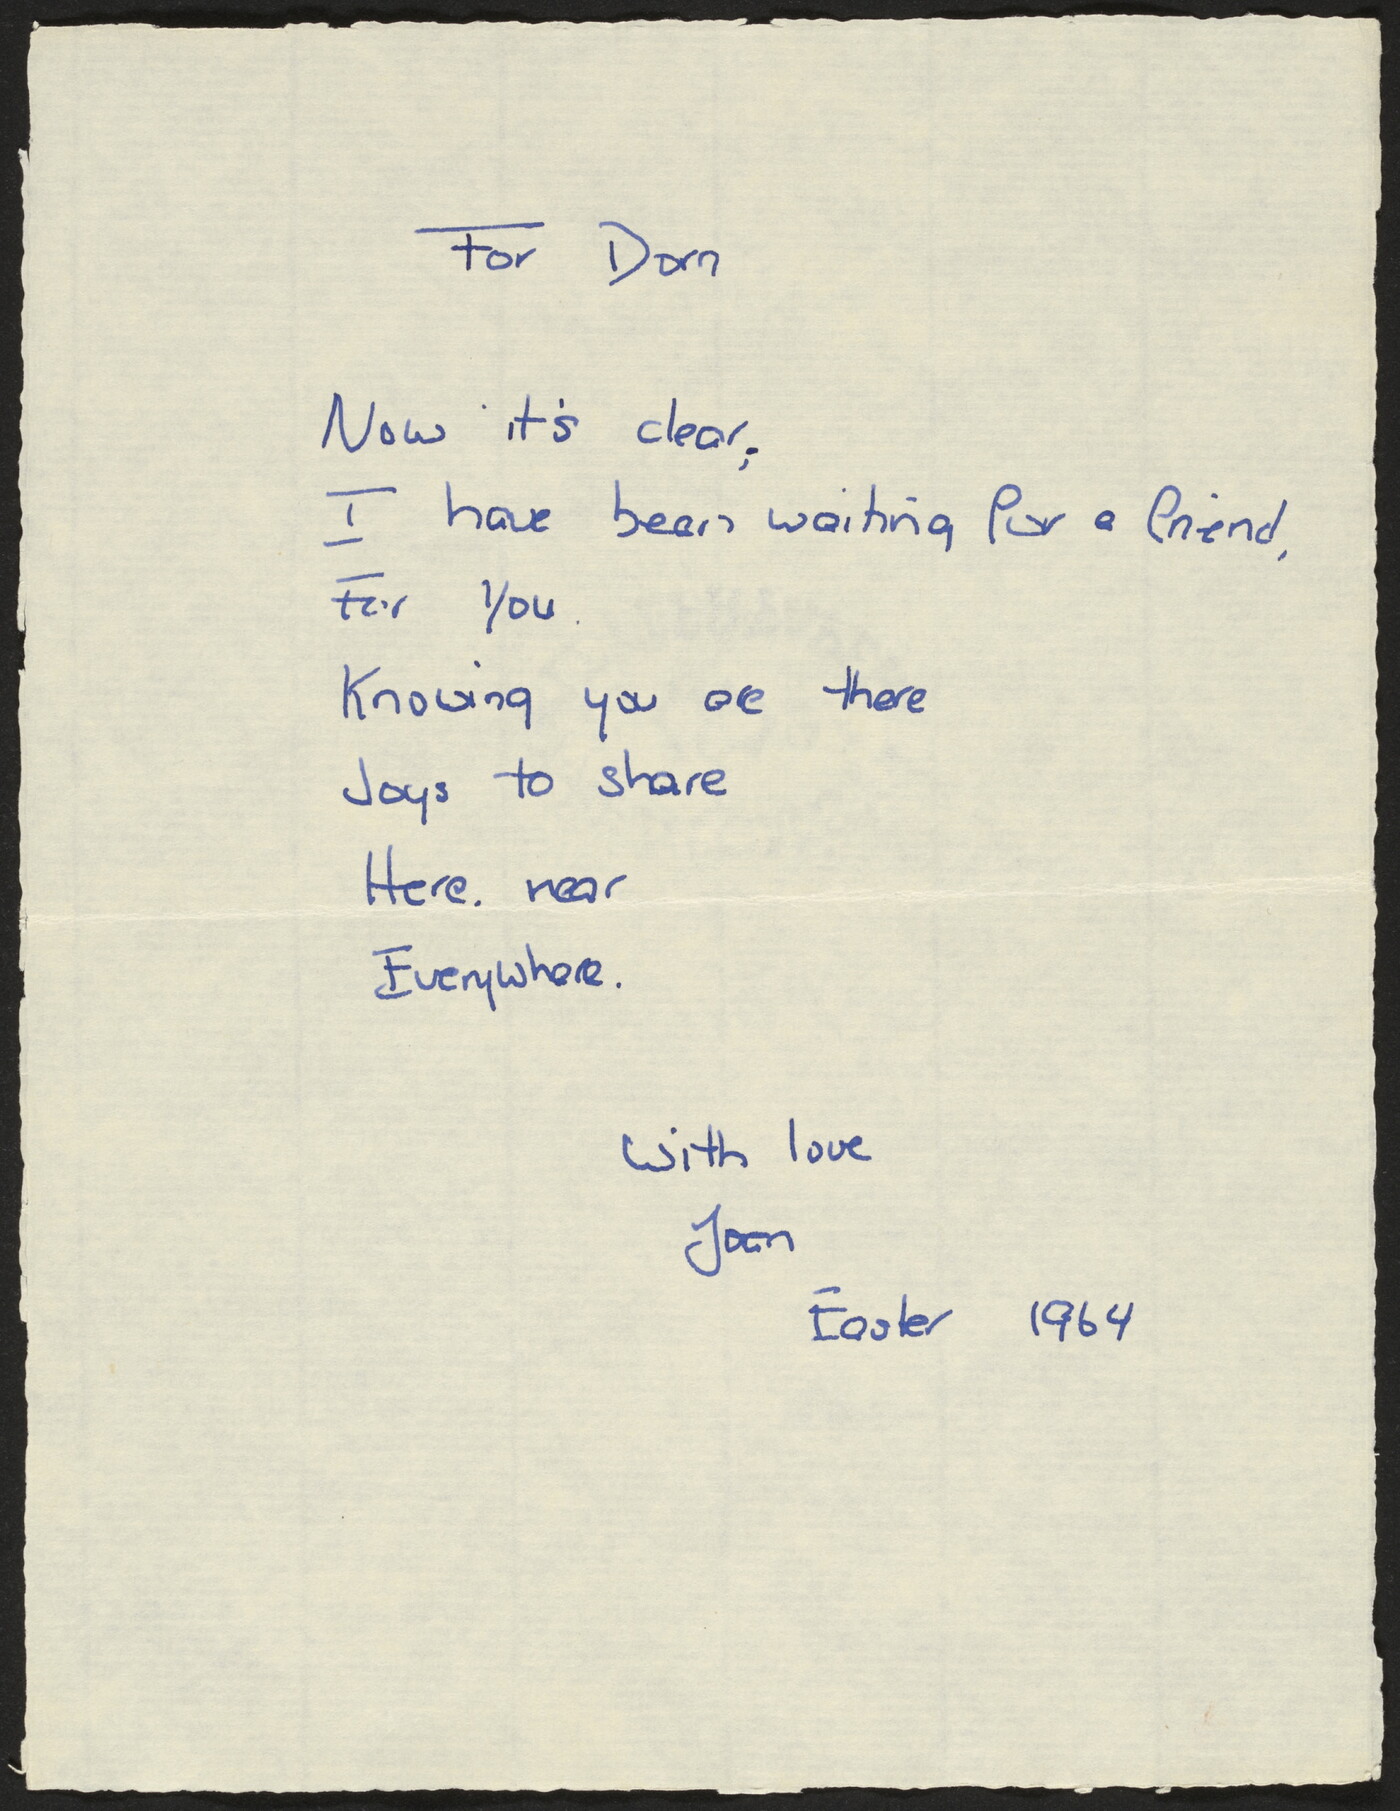 For Dorn
Now it's clear;
I have been waiting for a friend,
For You.
Knowing you are there
Joys to share
Here. near
Everywhere.
With love
Joan
Easter 1964